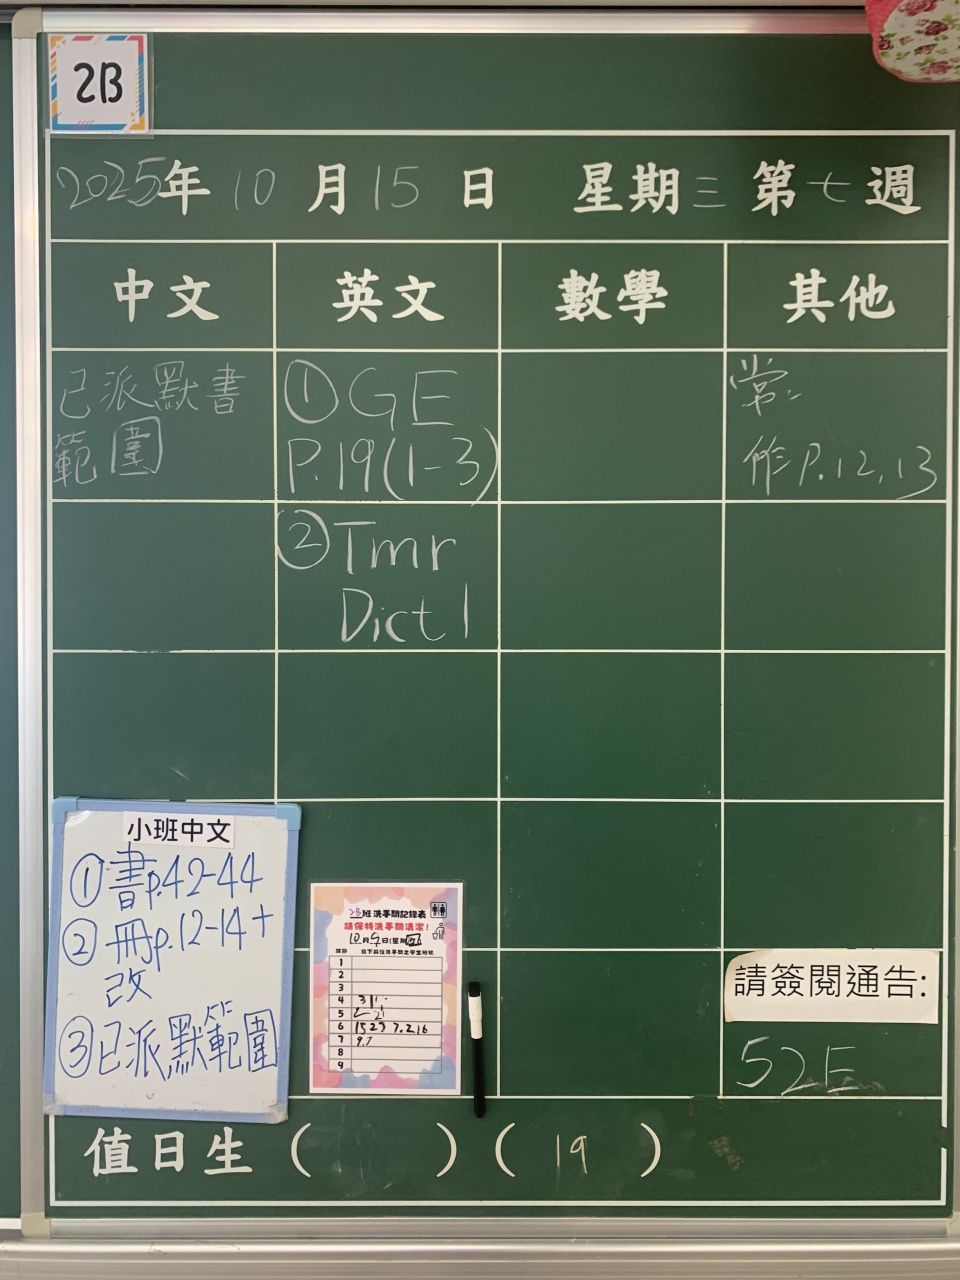 2B
2025年10月15日 星期三 第七週
中文 英文 數學 其他
已派默書
範圍
①GE
P.19(1-3)
②Tmr
Dict 1
常:
作P.12,13
小班中文
①書p.42-44
②冊p.12-14+
改
③已派默範圍
2B班洗手間記錄表
請保持洗手間清潔!
10月9日(星期四)
1
2
3
4
5
6 15 23 7.2,16
7 9.7
8
9
請簽閱通告:
52E
值日生 ( ) ( 19 )